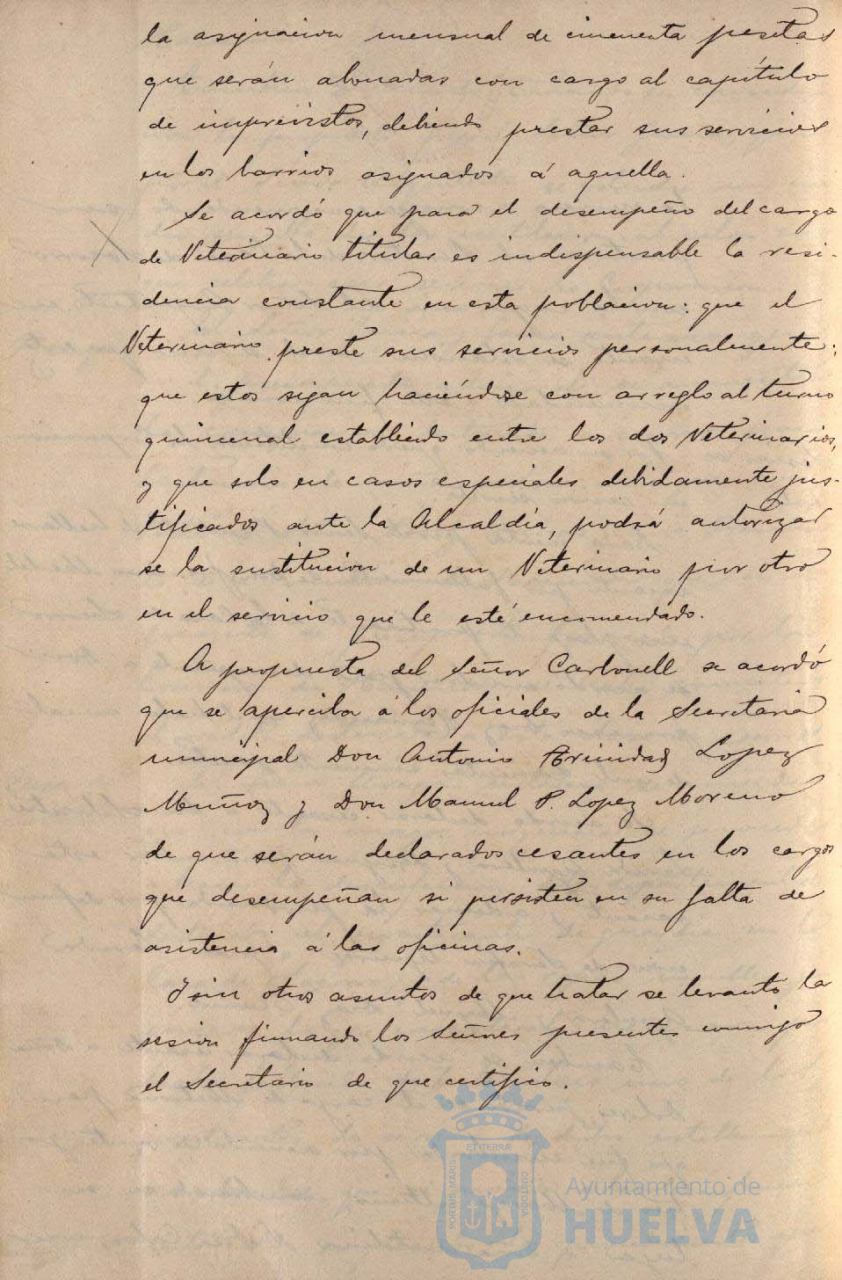 la asignacion mensual de cincuenta pesetas
que serán abonadas con cargo al capítulo
de imprevistos, debiendo prestar sus servicios
en los barrios asignados á aquella.
Se acordó que para el desempeño del cargo
de Veterinario titular es indispensable la resi-
dencia constante en esta poblacion: que el
Veterinario preste sus servicios personalmente;
que estos sigan haciéndose con arreglo al turno
quincenal establiendo entre los dos Veterinarios,
y que solo en casos especiales debidamente jus-
tificados ante la Alcaldía, podrá autorizar
se la sustitucion de un Veterinario por otro
en el servicio que le esté encomendado.
A propuesta del Señor Carbonell se acordó
que se aperciba á los oficiales de la Secretaria
municipal Don Antonio Trinidad Lopez
Muñoz y Don Manuel P. Lopez Moreno
de que serán declarados cesantes en los cargos
que desempeñan si persisten en su falta de
asistencia á las oficinas.
Y sin otros asuntos de que tratar se levantó la
sesion firmando los Señores presentes conmigo
el Secretario de que certifico.
ET TERRÆ
PORTUS MARIS
CUSTODIA
Ayuntamiento de
HUELVA